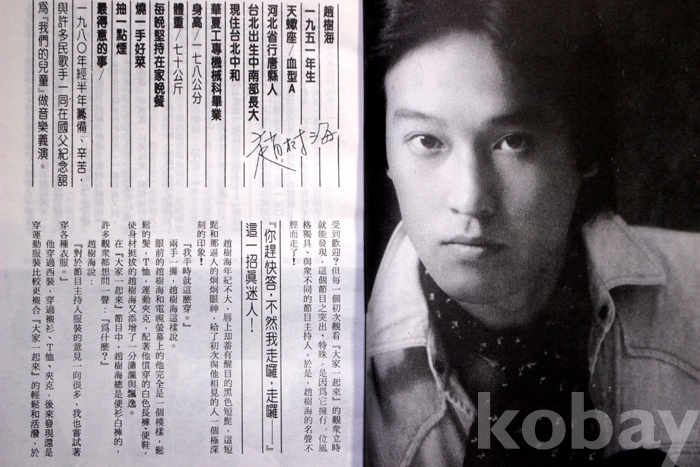 趙樹海
一九五一年生
天蠍座/血型A
河北省行唐縣人
台北出生中南部長大
現住台北中和
華夏工專機械科畢業
身高/一七八公分
體重/七十公斤
每晚堅持在家晚餐
燒一手好菜
抽一點煙
最得意的事/
一九八〇年經半年籌備、辛苦,
與許多民歌手一同在國父紀念舘
爲『我們的兒童』做音樂義演。
趙樹海
受到歡迎?但每一個初次觀看『大家一起來』的觀衆立時
就能發現,這個節目之突出、特殊,是因爲它擁有一位風
格獨具、與衆不同的節目主持人,於是,趙樹海的名聲不
脛而走了!
『你趕快答,不然我走囉,走囉……』
這一招眞迷人!
趙樹海年紀不大,唇上却蓄有醒目的黑色短髭,這短
髭和那逼人的炯炯眼神,給了初次與他相見的人一個極深
刻的印象!
『我平時就這麼穿。』
兩手一攤,趙樹海這樣說。
眼前的趙樹海和電視螢幕上的他完全是一個模樣,鬆
鬆的髮,T恤,運動夾克,配著他慣穿的白色長褲、便鞋,
使身材挺拔的趙樹海又添增了一分瀟灑與飄逸。
在『大家一起來』節目中,趙樹海總是便衫白褲的,
許多觀衆都想問一聲:『爲什麼?』
趙樹海說:
『對於節目主持人服裝的意見一向很多,我也嘗試著
穿各種衣服。』
他穿過西裝,穿過襯衫、T恤、夾克,後來發現還是
穿運動服裝比較更襯合『大家一起來』的輕鬆和活潑,於
kobay